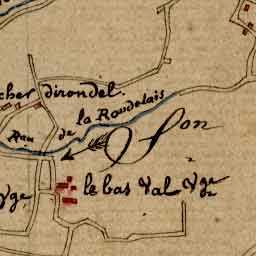 cher dirondel.
la Roudelais
Rau de
Son
le bas Val Vge
Vge